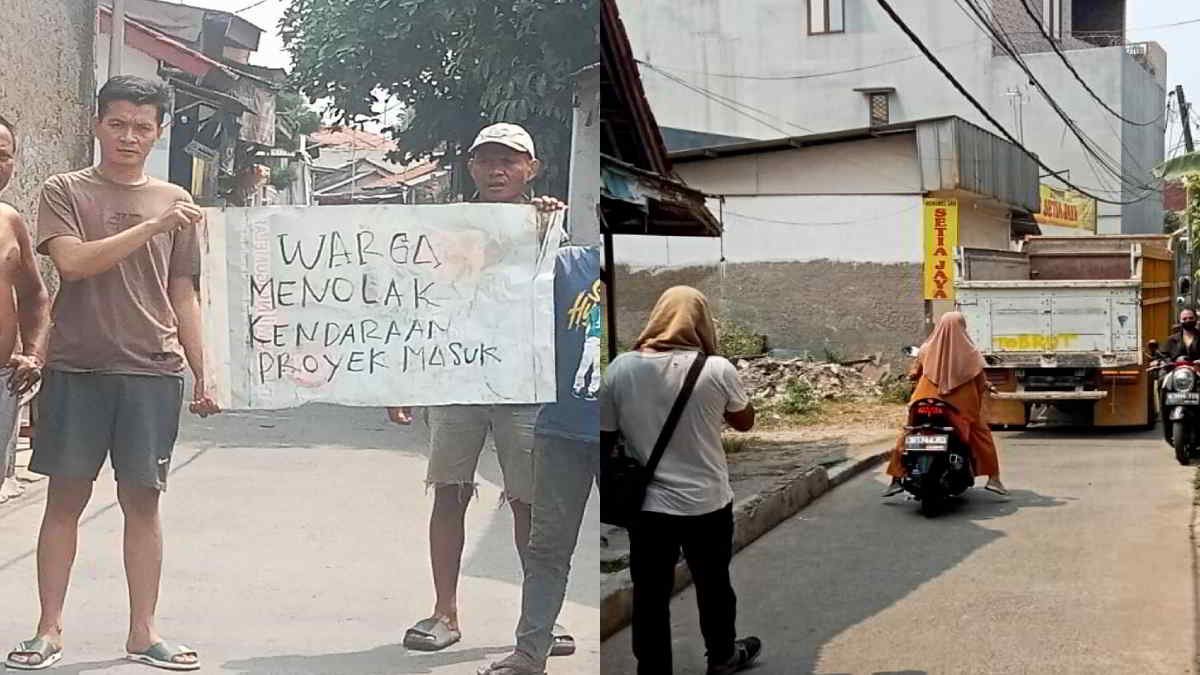 WARGA
MENOLAK
KENDARAAN
PROYEK MASUK
SETIA JAYA
SETIA JAYA
TOBRUT